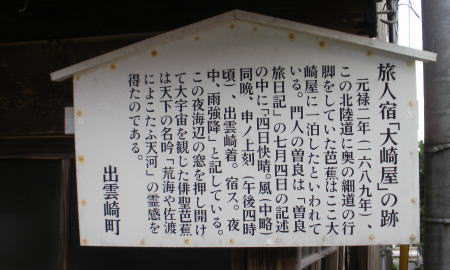 旅人宿「大崎屋」の跡
元禄二年（一六八九年）、
この北陸道に奥の細道の行
脚をしていた芭蕉はここ大
崎屋に一泊したといわれて
いる。門人の曽良は「曽良
旅日記」の七月四日の記述
の中に「四日快晴。風（中略）
同晩、申ノ上刻（午後四時
頃）、出雲崎着。宿ス。夜
中、雨強降」と記している。
この夜海辺の窓を押し開け
て大宇宙を観じた俳聖芭蕉
は天下の名吟「荒海や佐渡
によこたふ天河」の霊感を
得たのである。
出雲崎町